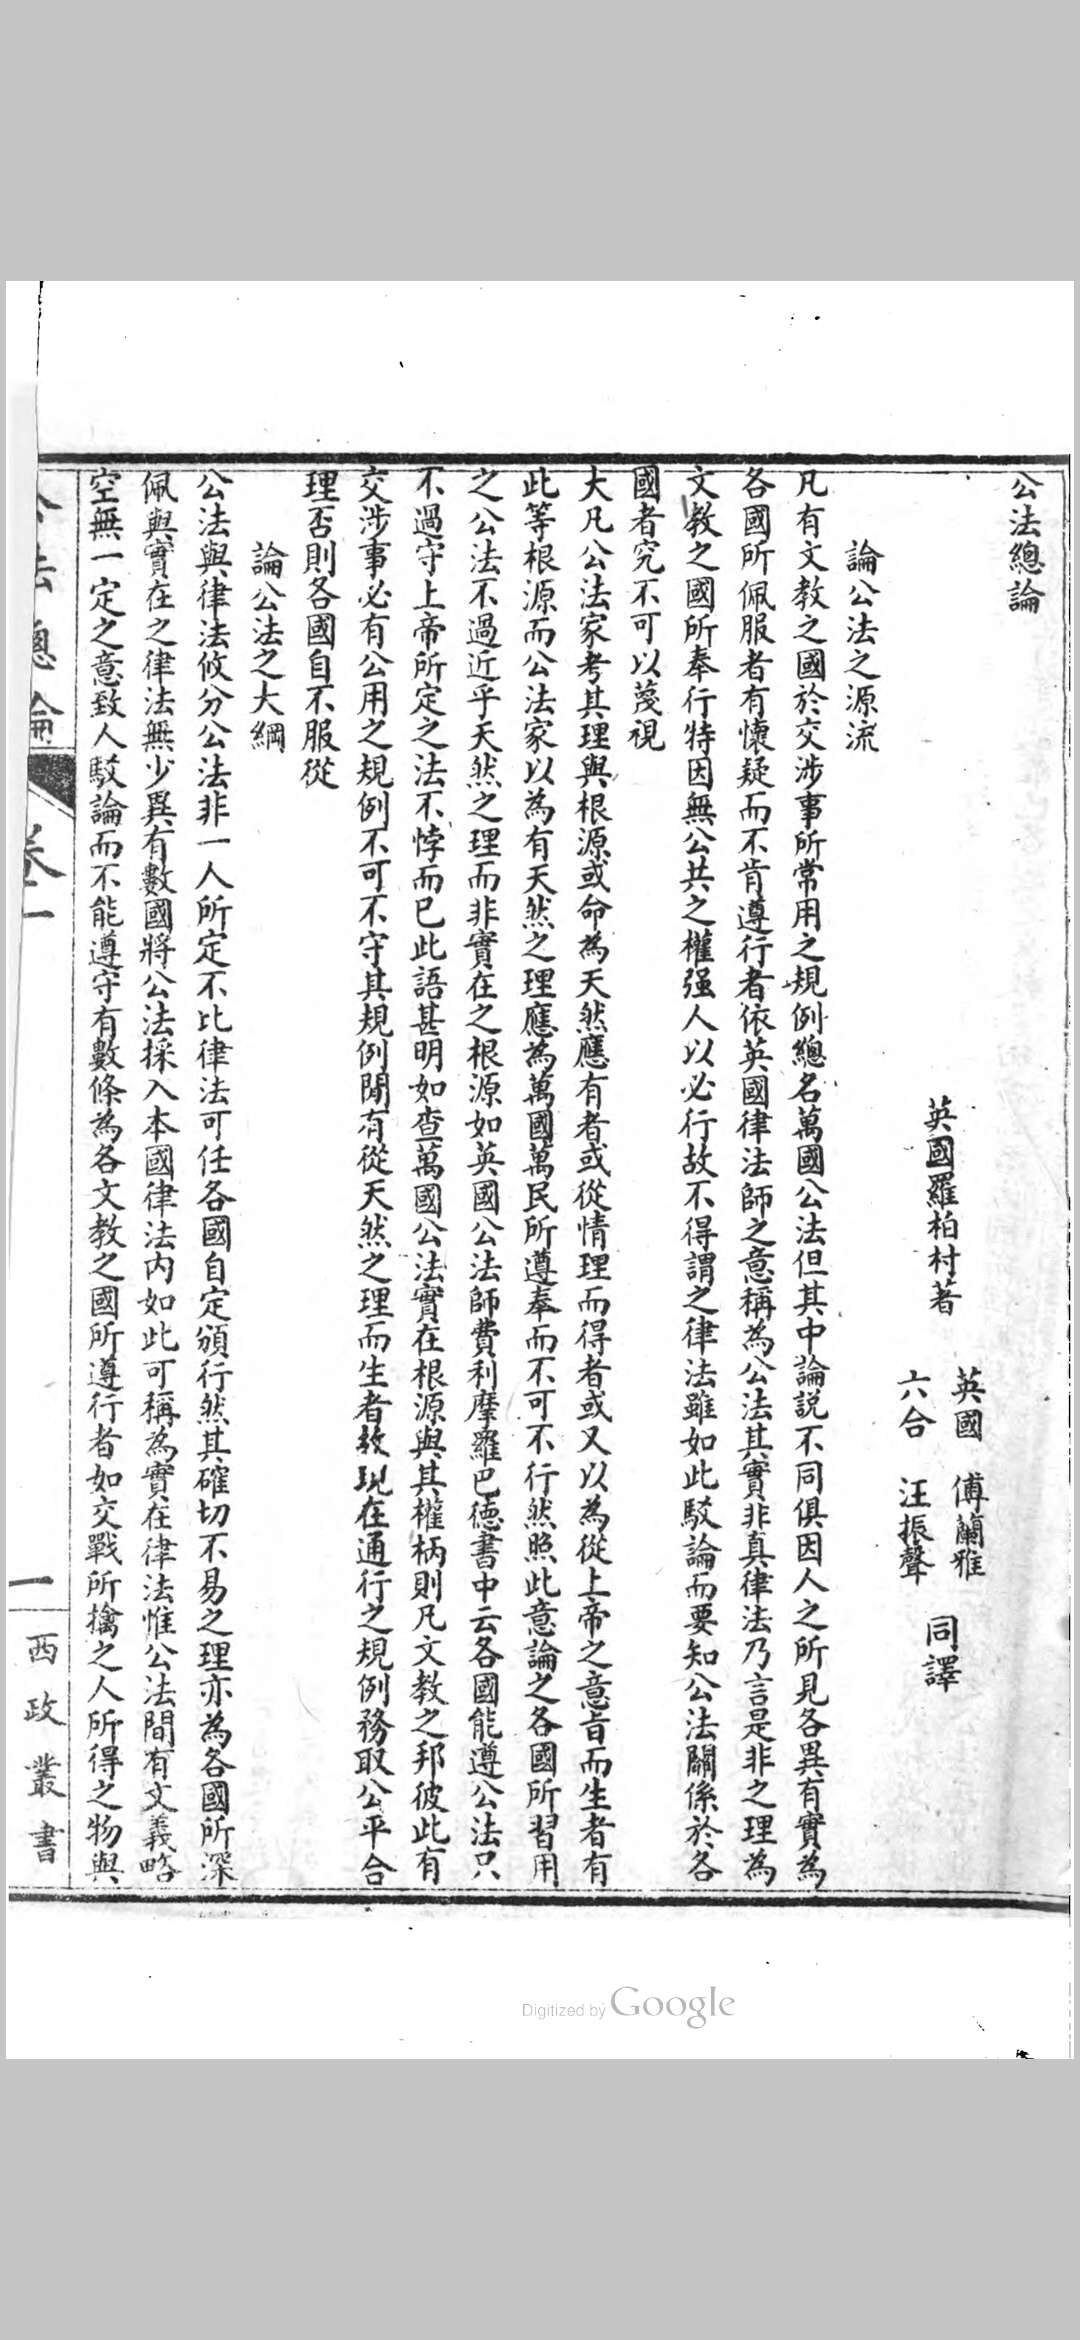 公法總論
英國羅柏村著
英國 傅蘭雅
六合 汪振聲
同譯
論公法之源流
凡有文教之國於交涉事所常用之規例總名萬國公法但其中論説不同俱因人之所見各異有實為
各國所佩服者有懷疑而不肯遵行者依英國律法師之意稱為公法其實非真律法乃言是非之理為
文教之國所奉行特因無公共之權强人以必行故不得謂之律法雖如此駁論而要知公法關係於各
國者究不可以蔑視
大凡公法家考其理與根源或命為天然應有者或從情理而得者或又以為從上帝之意旨而生者有
此等根源而公法家以為有天然之理應為萬國萬民所遵奉而不可不行然照此意論之各國所習用
之公法不過近乎天然之理而非實在之根源如英國公法師費利摩羅巴德書中云各國能遵公法只
不過守上帝所定之法不悖而已此語甚明如查萬國公法實在根源與其權柄則凡文教之邦彼此有
交涉事必有公用之規例不可不守其規例閒有從天然之理而生者故現在通行之規例務取公平合
理否則各國自不服從
論公法之大綱
公法與律法攸分公法非一人所定不比律法可任各國自定頒行然其確切不易之理亦為各國所深
佩與實在之律法無少異有數國將公法採入本國律法内如此可稱為實在律法惟公法間有文義略
空無一定之意致人駁論而不能遵守有數條為各文教之國所遵行者如交戰所擒之人所得之物與
公法總論
卷一
一
西政叢書
Digitized by Google